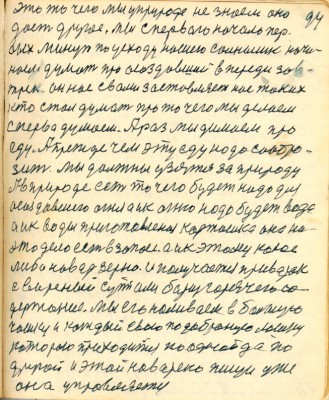 94
это то чего мы у природе не знаем оно
дает другое. Мы с первого начало пер-
вых минут по уходу нашего солнышка начи-
наем думать про опоздавший впереди зав-
трак. он нас с вами заставляет нас таких
кто стал думать про то чего мы делаем
сперва думаем. А раз мы думаем про
еду А прежде чем эту еду надо сообра-
зить. Мы должны взятся за природу
А в природе есть то чего будет надо для
опоздавшего огня а к огню надо будет вода
а к воды приготовленая картошка она на
это дело есть в запасе. а к этому какое
либо навар зерно. И получается привязак
с вареный суп или борщ горячего со-
держание. Мы его наливаем в большую
чашку и каждый свою подобранную ложку
которою приходится по одной да по
другой и этой наварено пищи уже
она управляется